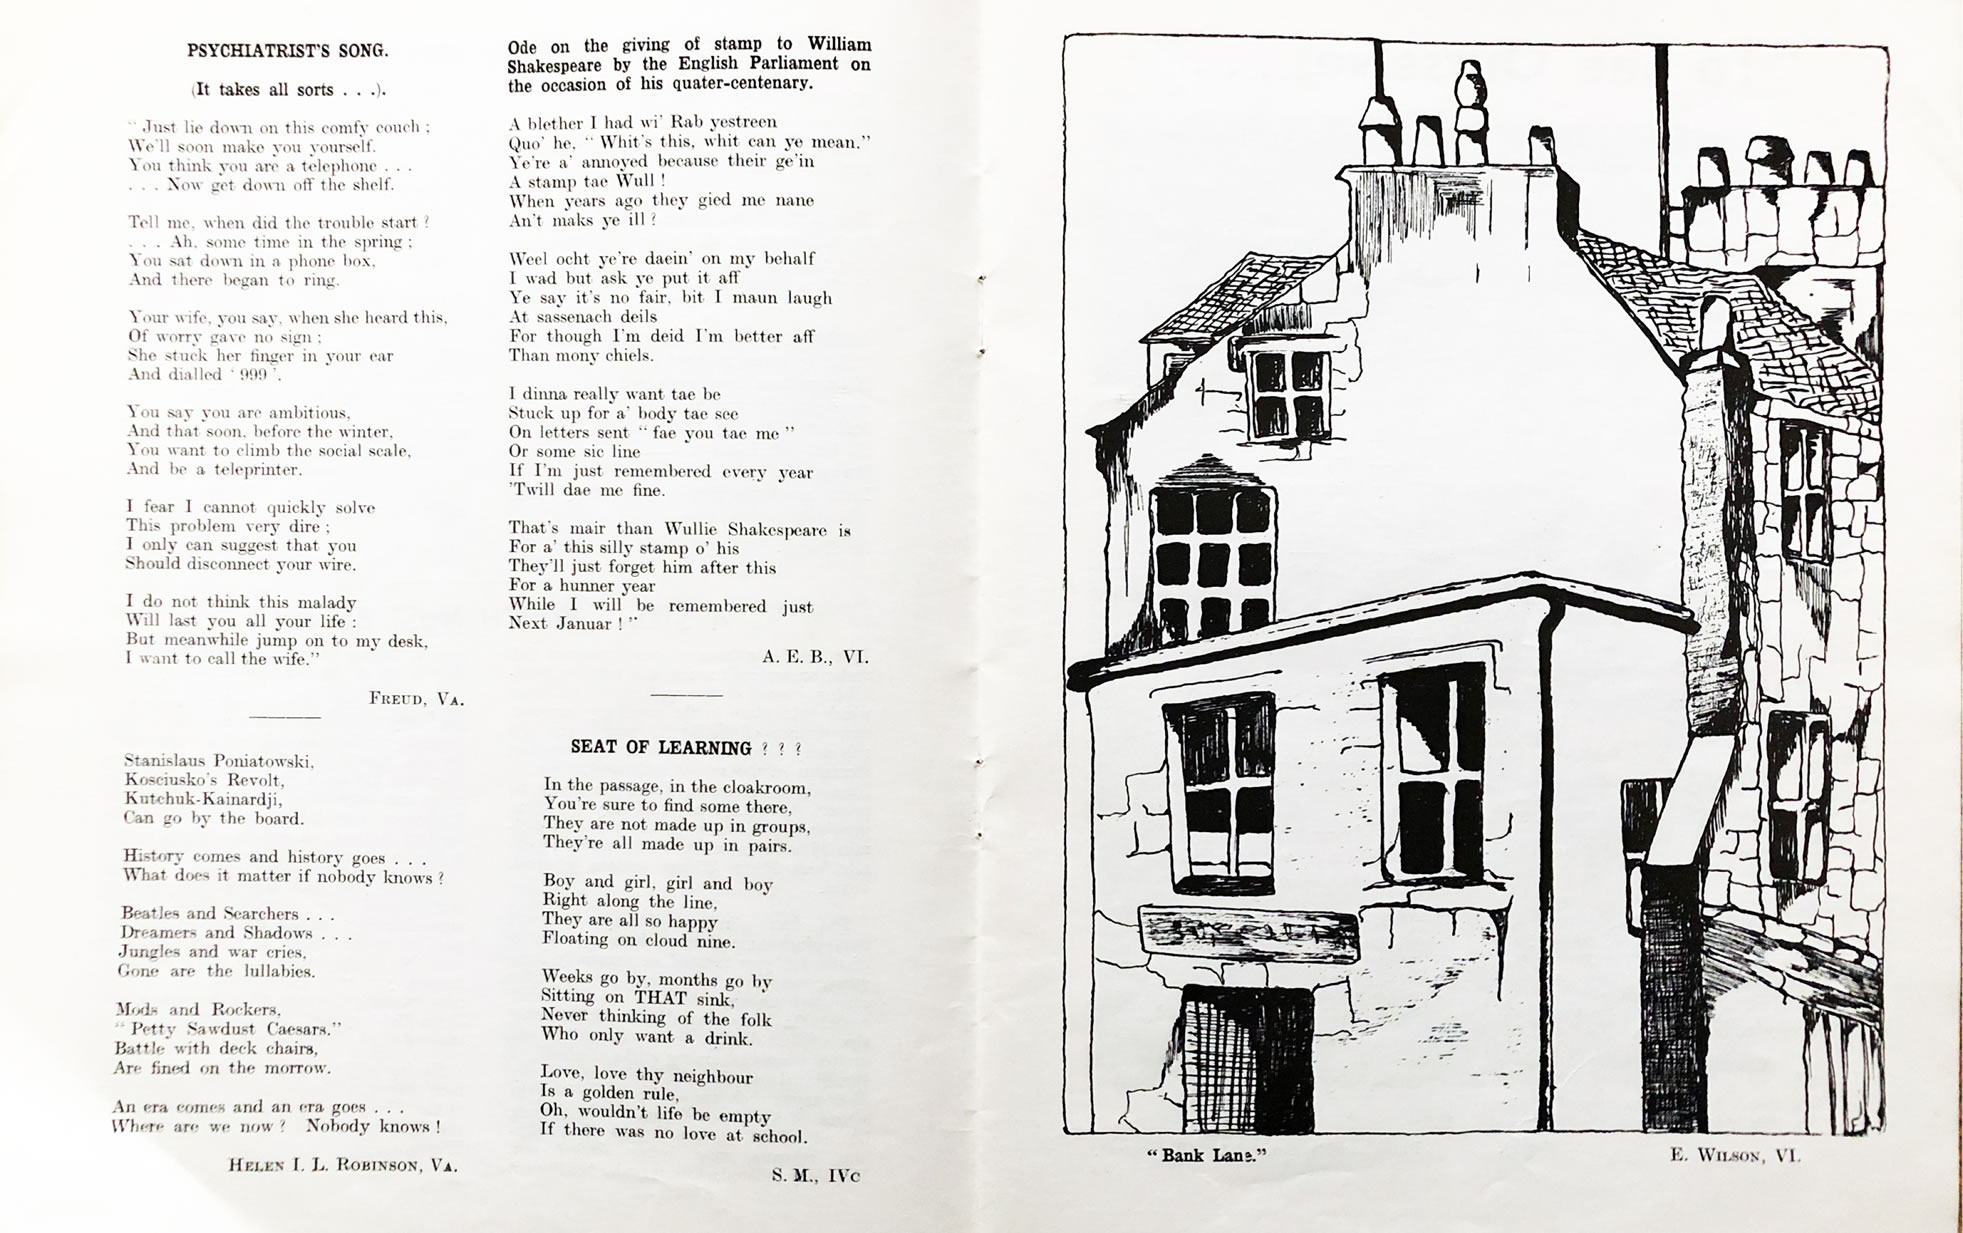 PSYCHIATRIST'S SONG.
(It takes all sorts . . .).
" Just lie down on this comfy couch ;
We'll soon make you yourself.
You think you are a telephone . . .
. . . Now get down off the shelf.
Tell me, when did the trouble start ?
. . . Ah, some time in the spring ;
You sat down in a phone box,
And there began to ring.
Your wife, you say, when she heard this,
Of worry gave no sign ;
She stuck her finger in your ear
And dialled ' 999 '.
You say you are ambitious,
And that soon, before the winter,
You want to climb the social scale,
And be a teleprinter.
I fear I cannot quickly solve
This problem very dire ;
I only can suggest that you
Should disconnect your wire.
I do not think this malady
Will last you all your life :
But meanwhile jump on to my desk,
I want to call the wife."
FREUD, VA.
Stanislaus Poniatowski,
Kosciusko's Revolt,
Kutchuk-Kainardji,
Can go by the board.
History comes and history goes . . .
What does it matter if nobody knows ?
Beatles and Searchers . . .
Dreamers and Shadows . . .
Jungles and war cries,
Gone are the lullabies.
Mods and Rockers,
" Petty Sawdust Caesars."
Battle with deck chairs,
Are fined on the morrow.
An era comes and an era goes . . .
Where are we now ? Nobody knows !
HELEN I. L. ROBINSON, VA.
Ode on the giving of stamp to William
Shakespeare by the English Parliament on
the occasion of his quater-centenary.
A blether I had wi' Rab yestreen
Quo' he, " Whit's this, whit can ye mean."
Ye're a' annoyed because their ge'in
A stamp tae Wull !
When years ago they gied me nane
An't maks ye ill ?
Weel ocht ye're daein' on my behalf
I wad but ask ye put it aff
Ye say it's no fair, bit I maun laugh
At sassenach deils
For though I'm deid I'm better aff
Than mony chiels.
I dinna really want tae be
Stuck up for a' body tae see
On letters sent " fae you tae me "
Or some sic line
If I'm just remembered every year
'Twill dae me fine.
That's mair than Wullie Shakespeare is
For a' this silly stamp o' his
They'll just forget him after this
For a hunner year
While I will be remembered just
Next Januar ! "
A. E. B., VI.
SEAT OF LEARNING ? ? ?
In the passage, in the cloakroom,
You're sure to find some there,
They are not made up in groups,
They're all made up in pairs.
Boy and girl, girl and boy
Right along the line,
They are all so happy
Floating on cloud nine.
Weeks go by, months go by
Sitting on THAT sink,
Never thinking of the folk
Who only want a drink.
Love, love thy neighbour
Is a golden rule,
Oh, wouldn't life be empty
If there was no love at school.
S. M., IVc
"Bank Lane."
E. WILSON, VI.